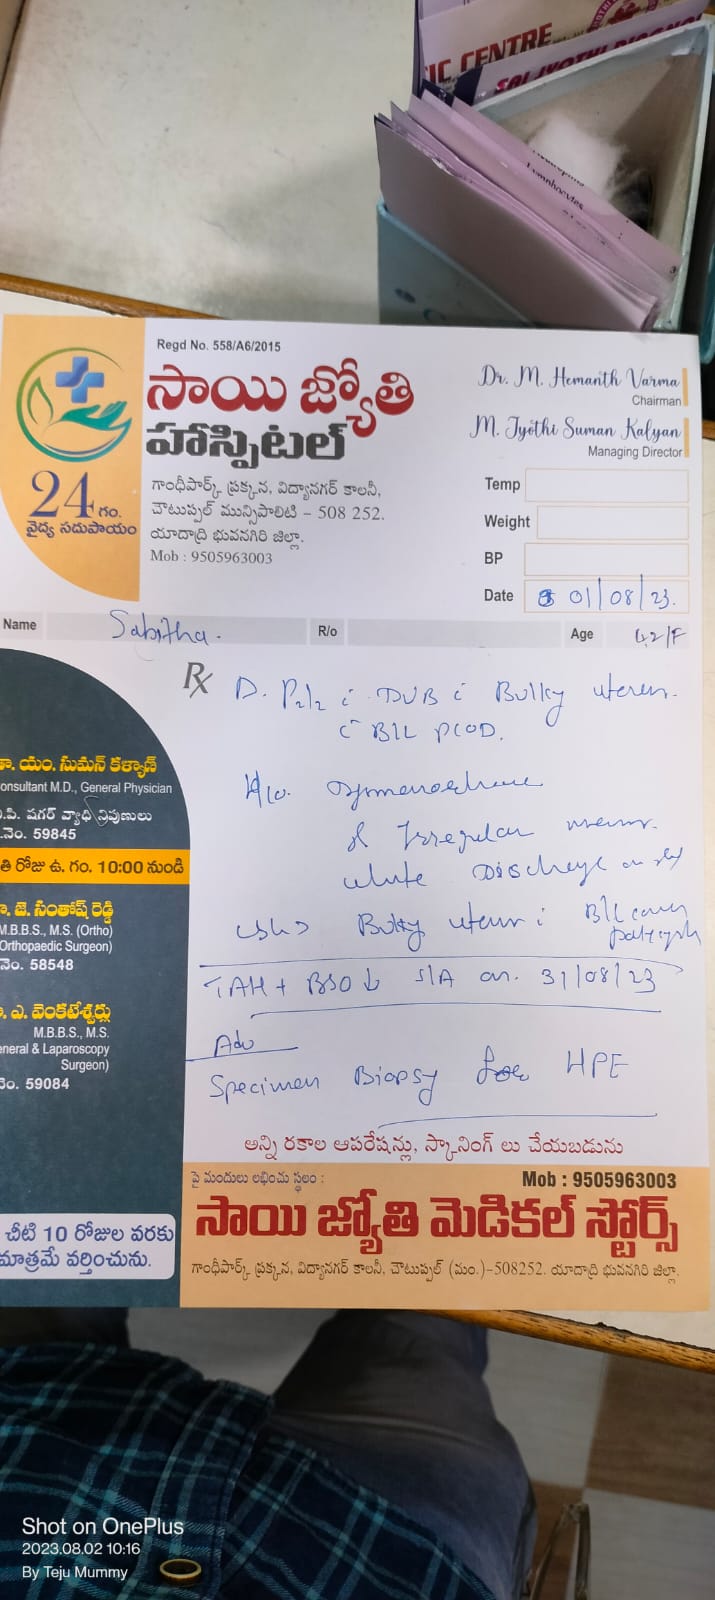 IC CENTRE
SAI JYOTHI DIAGNO
Lymphocytes
Regd No. 558/A6/2015
సాయి జ్యోతి
హాస్పిటల్
24 గం.
వైద్య సదుపాయం
గాంధీపార్క్ ప్రక్కన, విద్యానగర్ కాలనీ,
చౌటుప్పల్ మున్సిపాలిటి - 508 252.
యాదాద్రి భువనగిరి జిల్లా.
Mob : 9505963003
Dr. M. Hemanth Varma
Chairman
M. Jyothi Suman Kalyan
Managing Director
Temp
Weight
BP
Date 01/08/23.
Name Sabitha. R/o Age 42/F
Rx D. P2/2 c DUB c Bulky uterus.
c B/L PCOD.
H/o. Dysmenorrhoea
& Irregular menses.
white Discharge
USG> Bulky uterus c B/L
TAH + BSO ↓ S/A on. 31/08/23
Adv
Specimen Biopsy for HPE
డా. యం. సుమన్ కళ్యాణ్
onsultant M.D., General Physician
.పి. షుగర్ వ్యాధి నిపుణులు
.నెం. 59845
తి రోజు ఉ. గం. 10:00 నుండి
ా. జె. సంతోష్ రెడ్డి
M.B.B.S., M.S. (Ortho)
Orthopaedic Surgeon)
నెం. 58548
. ఎ. వెంకటేశ్వర్లు
M.B.B.S., M.S.
eneral & Laparoscopy
Surgeon)
నెం. 59084
చీటి 10 రోజుల వరకు
మాత్రమే వర్తించును.
అన్ని రకాల ఆపరేషన్లు, స్కానింగ్ లు చేయబడును
పై మందులు లభించు స్థలం :
Mob : 9505963003
సాయి జ్యోతి మెడికల్ స్టోర్స్
గాంధీపార్క్ ప్రక్కన, విద్యానగర్ కాలనీ, చౌటుప్పల్ (మం.)-508252. యాదాద్రి భువనగిరి జిల్లా.
Shot on OnePlus
2023.08.02 10:16
By Teju Mummy